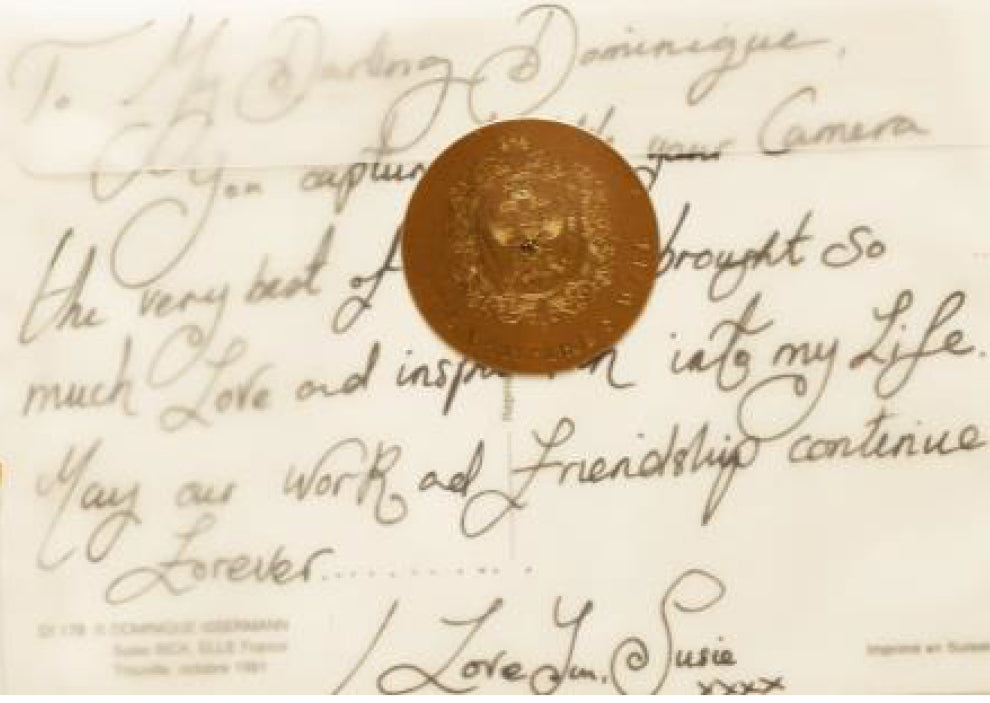 To My Darling Dominique,
You captur your Camera
the very best of brought so
much Love and inspi n into my Life.
May our Work ad Friendship contenue
Forever..............
DOMINIQUE ISSERMANN
Susie BICK, ELLE France
Trouville, octobre 1991
Imprimé en Suisse
I Love You, Susie
xxxx